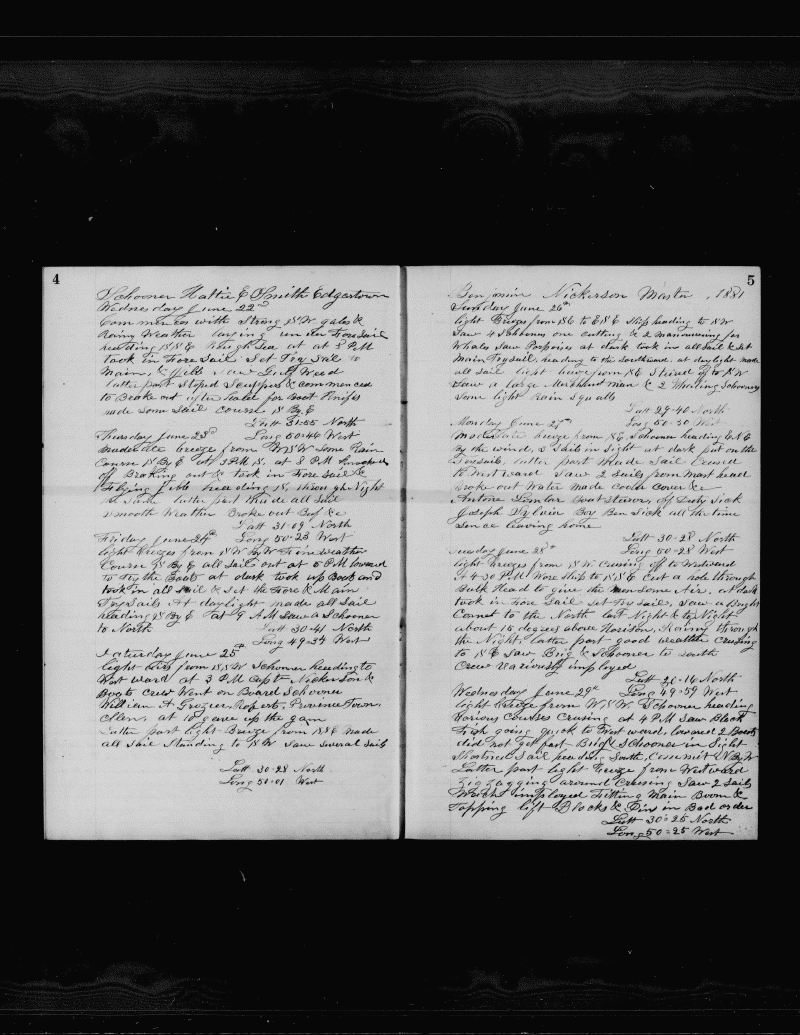 4
Schooner Hattie E Smith Edgartown
Wednesday June 22nd
Commences with Strong SW gales &
Rainy Weather laying under Fore Sail
heading SSE Rough Sea at at 8 PM
took in Fore Sail Set Try Sail
Main & Jibb Saw Gulf Weed
latter part Stoped Scuppers & commenced
to Broke out after hold for Boat Knifes
made Some Sail course S By E
Latt 31=55 North
Thursday June 23d Long 50=46 West
moderate breeze from WSW Some Rain
Course S By E at 3 PM S. at 8 PM Knocked
of Broking out & took in Fore Sail &
Flying Jibb heading S, through Night
the Same latter part Made all Sail
Smooth Weather Broke out Beef &c
Latt 31=09 North
Friday June 24th Long 50=23 West
light Breezes from SW By W Fine weather
Course S By E all Sails out at 5 PM lowerd
to Try the Boats at dark took up Boats and
took in all Sail & Set the Fore & Main
Try Sails At daylight made all Sail
heading S By E at 9 AM Saw a Schooner
to North Latt 30=41 North
Long 49=37 West
Saturday June 25th
light Airs from SSW Schooner heading to
West ward at 3 PM Capt Nickerson &
Boats crew Went on Board Schooner
William A Grozier, Roberts, Provincetown,
Clean, at 10 gave up the gam
Latter part light Breeze from SSE made
all Sail Standing to SW Saw Several Sails
Latt 30=28 North
Long 51=01 West
5
Benjamin Nickerson Master, 1881
Sunday June 26th
light Breezes from SE to ESE Ship heading to SW
Saw 4 Schooners one cutting & 2 manouvering for
Whales Saw Porpoises at dark took in all Sail & Set
Main Trysail, heading to the Southward. at daylight made
all Sail light breeze from SE Steered of to SW
Saw a large Merchant man & 2 Whaling Schooners
Some light Rain Squalls
Latt 29=40 North
Monday June 27th Long 50=50 West
Moderate breeze from SE Schooner heading ENE
By the wind, 2 Sails in Sight at dark put on the
Foresail, latter part Made Sail Crused
to Westward Saw 2 Sails from Mast head
Broke out Water made Cooler Cover &c
Antone Boat Steerer, off Duty Sick
Joseph Sylvia Boy Ben Sick all the time
Sence leaving home
Latt 30=28 North
Tuesday June 28th Long 50=28 West
light Breezes from SW Crusing off to Westward
At 4-30 PM Wore Ship to SSE Cut a hole through
Bulk Head to give the men Some Air, at dark
took in Fore Sail Set Try Sails, Saw a Bright
Comet to the North last Night & to Night
about 15 degrees above Horison, Rainy through
the Night, latter part good weather Crusing
to SE Saw Brig & Schooner to South
Crew Variously imployed
Latt 30=16 North
Wednesday June 29th Long 49=59 West
light breeze from WSW, Schooner heading
Various Courses Crusing at 4 PM Saw Black
Fish going quick to Westward, lowered 2 Boats
did not get fast Brig & Schooner in Sight
Shortned Sail heading South, Comet N By W
Latter part light breeze from Westward
Zig Zagging around Crusing Saw 2 Sails
imployed Fitting Main Boom &
Topping lift Blocks & Pins in Bad order
Latt 30=25 North
Long 50=25 West